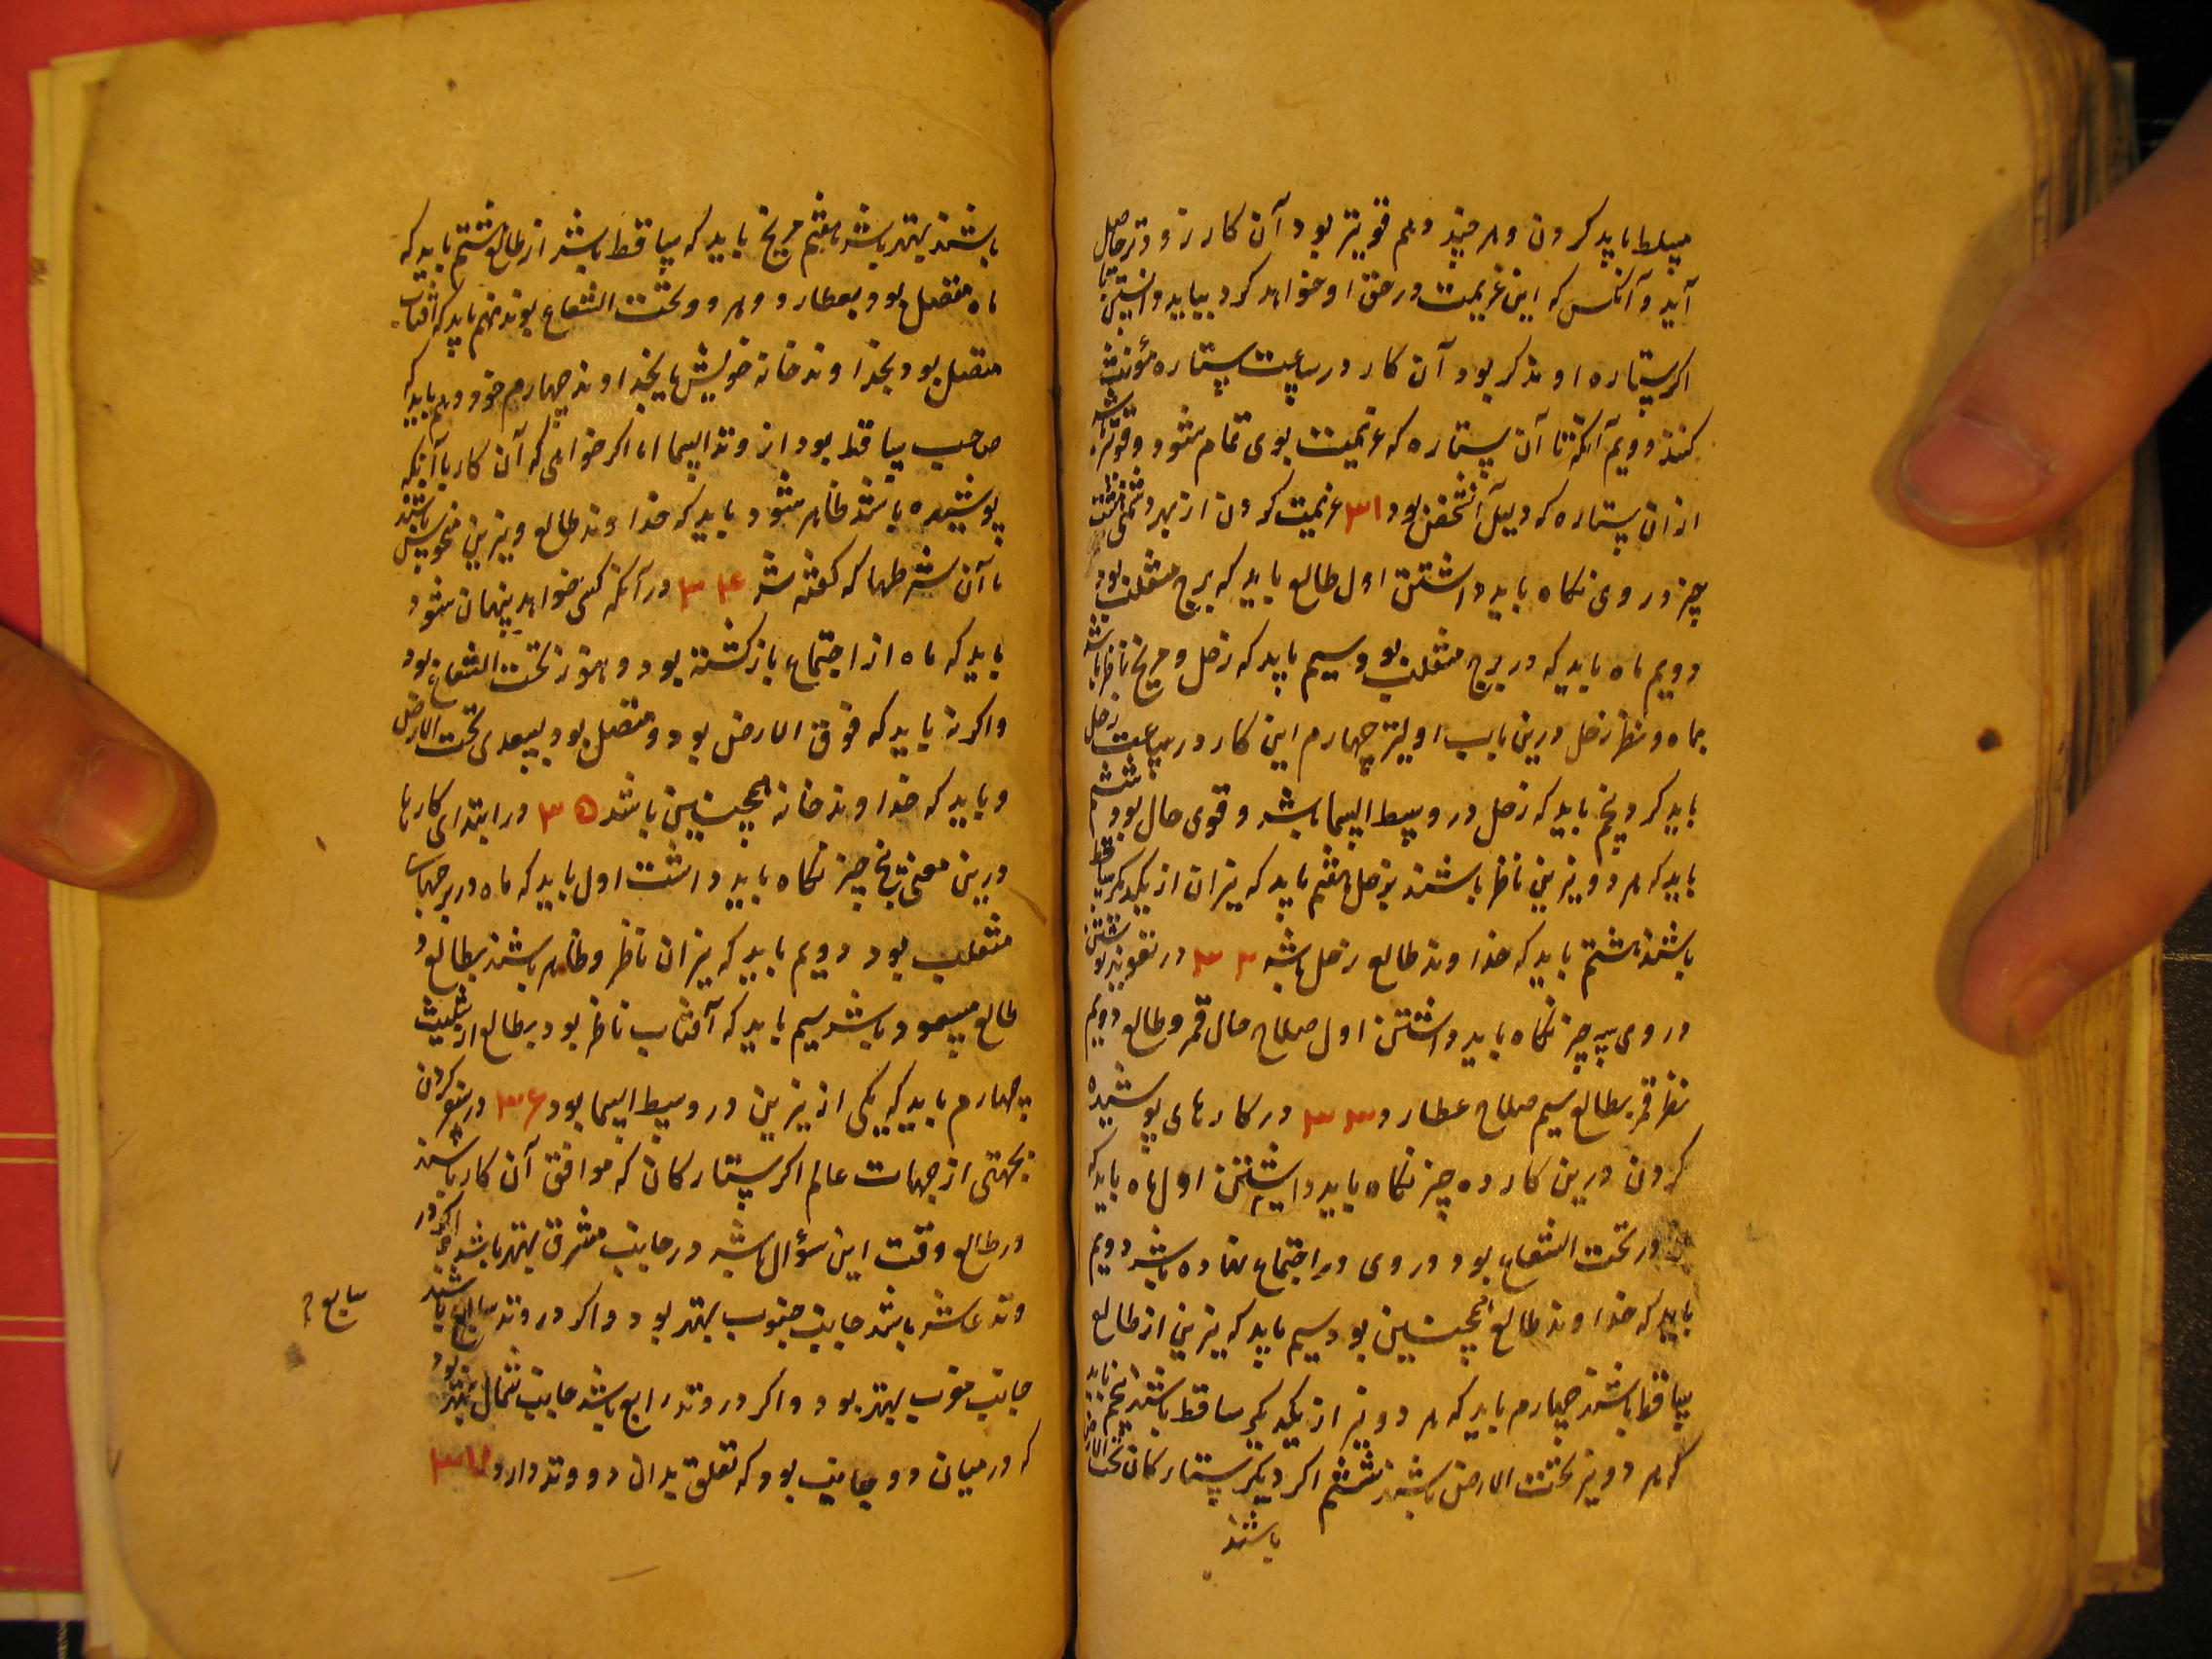 مسلط باید کردن و هر چند وهم قویتر بود آن کار زودتر حاصل
آید و آنکس که این عزیمت در حق او خواهد کرد بیاید دانستن تا
اکر ستاره او مذکر بود آن کار در ساعت ستاره مؤنث
کنند دویم آنکه تا آن ستاره که عزیمت بوی تمام شود قویتر باشد
ازان ستاره که دلیل آنشخص بود ۳۱ عزیمت کردن از بهر دشمنی هشت
چیز در وی نکاه باید داشتن اول طالع باید که برج منقلب بود
دویم ماه باید که در برج منقلب بود سیم باید که زحل و مریخ ناظر باشد
بماه و نظر زحل درین باب اولیتر چهارم این کار در ساعت زحل
باید کرد پنجم باید که زحل در وسط السما باشد و قوی حال بود ششم
باید که هر دو نیرین ناظر باشند بزحل هفتم باید که نیران از یکدیکر ساقط
باشند هشتم باید که خداوند طالع زحل باشد ۳۲ در تعویذ نوشتن
در وی سه چیز نکاه باید داشتن اول صلاح حال قمر و طالع دویم
نظر قمر بطالع سیم صلاح عطارد ۳۳ در کارهای پوشیده
کردن درین کار ده چیز نکاه باید داشتن اول ماه باید که
در تحت الشعاع بود و روی در اجتماع نهاده باشد دویم
باید که خداوند طالع همچنین بود سیم باید که نیرین از طالع
ساقط باشند چهارم باید که هر دو نیر از یکدیکر ساقط باشند پنجم باید
که هر دو نیر تحت الارض باشند ششم اکر دیکر ستارکان تحت الارض
باشند
باشند بهتر باشد هفتم مریخ باید که ساقط باشد از طالع هشتم باید که
ماه متصل بود بعطارد و هر دو تحت الشعاع بوند نهم باید که آفتاب
متصل بود بخداوند خانه خویش یا بخداوند چهارم خود دهم باید که
صاحب ساقط بود از وتد السما اما اکر خواهی که آن کار با آنکه
پوشیده باشد ظاهر شود باید که خداوند طالع و نیرین منحوس باشند
با آن شرطها که کفته شد ۳۴ در آنکه کسی خواهد پنهان شود
باید که ماه از اجتماع بازکشته بود و هنوز تحت الشعاع بود
و اکر نه باید که فوق الارض بود و متصل بود بسعدی تحت الارض
و باید که خداوند خانه همچنین باشد ۳۵ در ابتدای کارها
درین معنی پنج چیز نکاه باید داشت اول باید که ماه در برجهاء
منقلب بود دویم باید که نیران ناظر و ظاهر باشند بطالع و
طالع مسعود باشد سیم باید که آفتاب ناظر بود بطالع از تثلیث
چهارم باید که یکی از نیرین در وسط السما بود ۳۶ در سفر کردن
بجهتی از جهات عالم اکر ستارکان که موافق آن کار باشند
در طالع وقت این سؤال باشد در جانب مشرق بهتر باشد و اکر در
وتد عاشر باشد جانب جنوب بهتر بود و اکر در وتد سابع باشند
سابع
جانب مغرب بهتر بود و اکر در وتد رابع باشد جانب شمال بهتر بود
که در میان دو جانب بود که تعلق بدان دو وتد دارد ۳۷